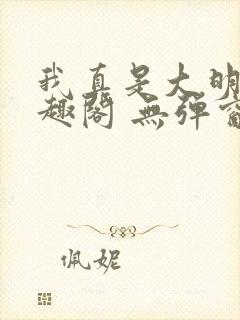 我真是大明
趣阁 無弹窗
佩妮